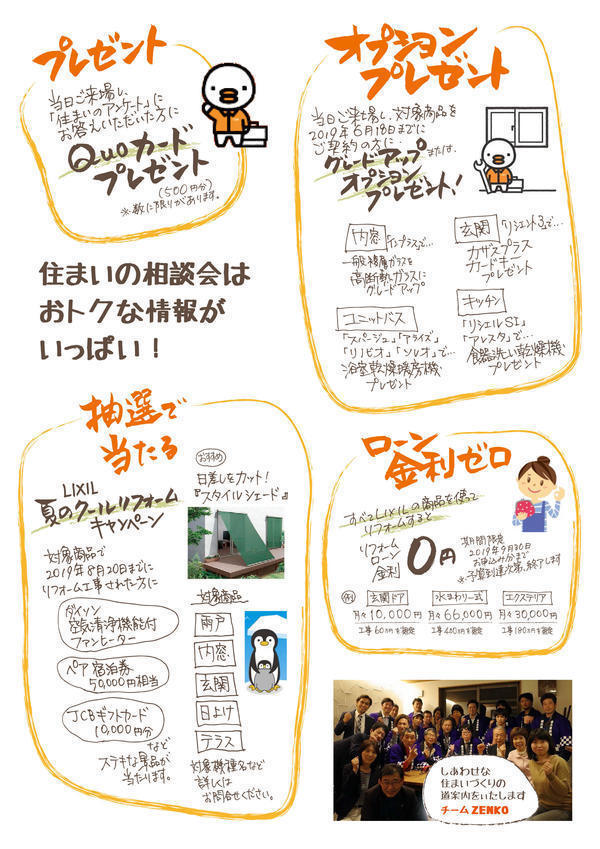 プレゼント
当日ご来場し、
「住まいのアンケート」に
お答えいただいた方に
Quoカード
プレゼント
(500円分)
※数に限りがあります。
オプション
プレゼント
当日ご来場し、対象商品を
2019年6月18日までに
ご契約の方に、
グレードアップまたは、
オプション
プレゼント!
内窓「インプラス」で…
一般複層ガラスを
高断熱ガラスに
グレードアップ
玄関「リシェント3」で…
カザスプラス
カードキー
プレゼント
ユニットバス
「スパージュ」「アライズ」
「リノビオ」「ソレオ」で…
浴室乾燥暖房機
プレゼント
キッチン
「リシェルSI」
「アレスタ」で…
食器洗い乾燥機
プレゼント
住まいの相談会は
おトクな情報が
いっぱい!
抽選で
当たる
LIXIL
夏のクールリフォーム
キャンペーン
対象商品で
2019年8月20日までに
リフォーム工事された方に
ダイソン
空気清浄機能付
ファンヒーター
ペア宿泊券
50,000円相当
JCBギフトカード
10,000円分
など
ステキな景品が
当たります。
おすすめ
日差しをカット!
『スタイルシェード』
対象商品
雨戸
内窓
玄関
日よけ
テラス
対象機種名など
詳しくは
お問合せください。
ローン
金利ゼロ
すべてLIXILの商品を使って
リフォームすると
リフォーム
ローン
金利
0円
期間限定
2019年9月30日
お申込み分まで
※予算到達次第、終了します
例
玄関ドア
月々10,000円
工事60万円を想定
水まわり一式
月々66,000円
工事400万円を想定
エクステリア
月々30,000円
工事180万円を想定
しあわせな
住まいづくりの
道案内をいたします
チームZENKO